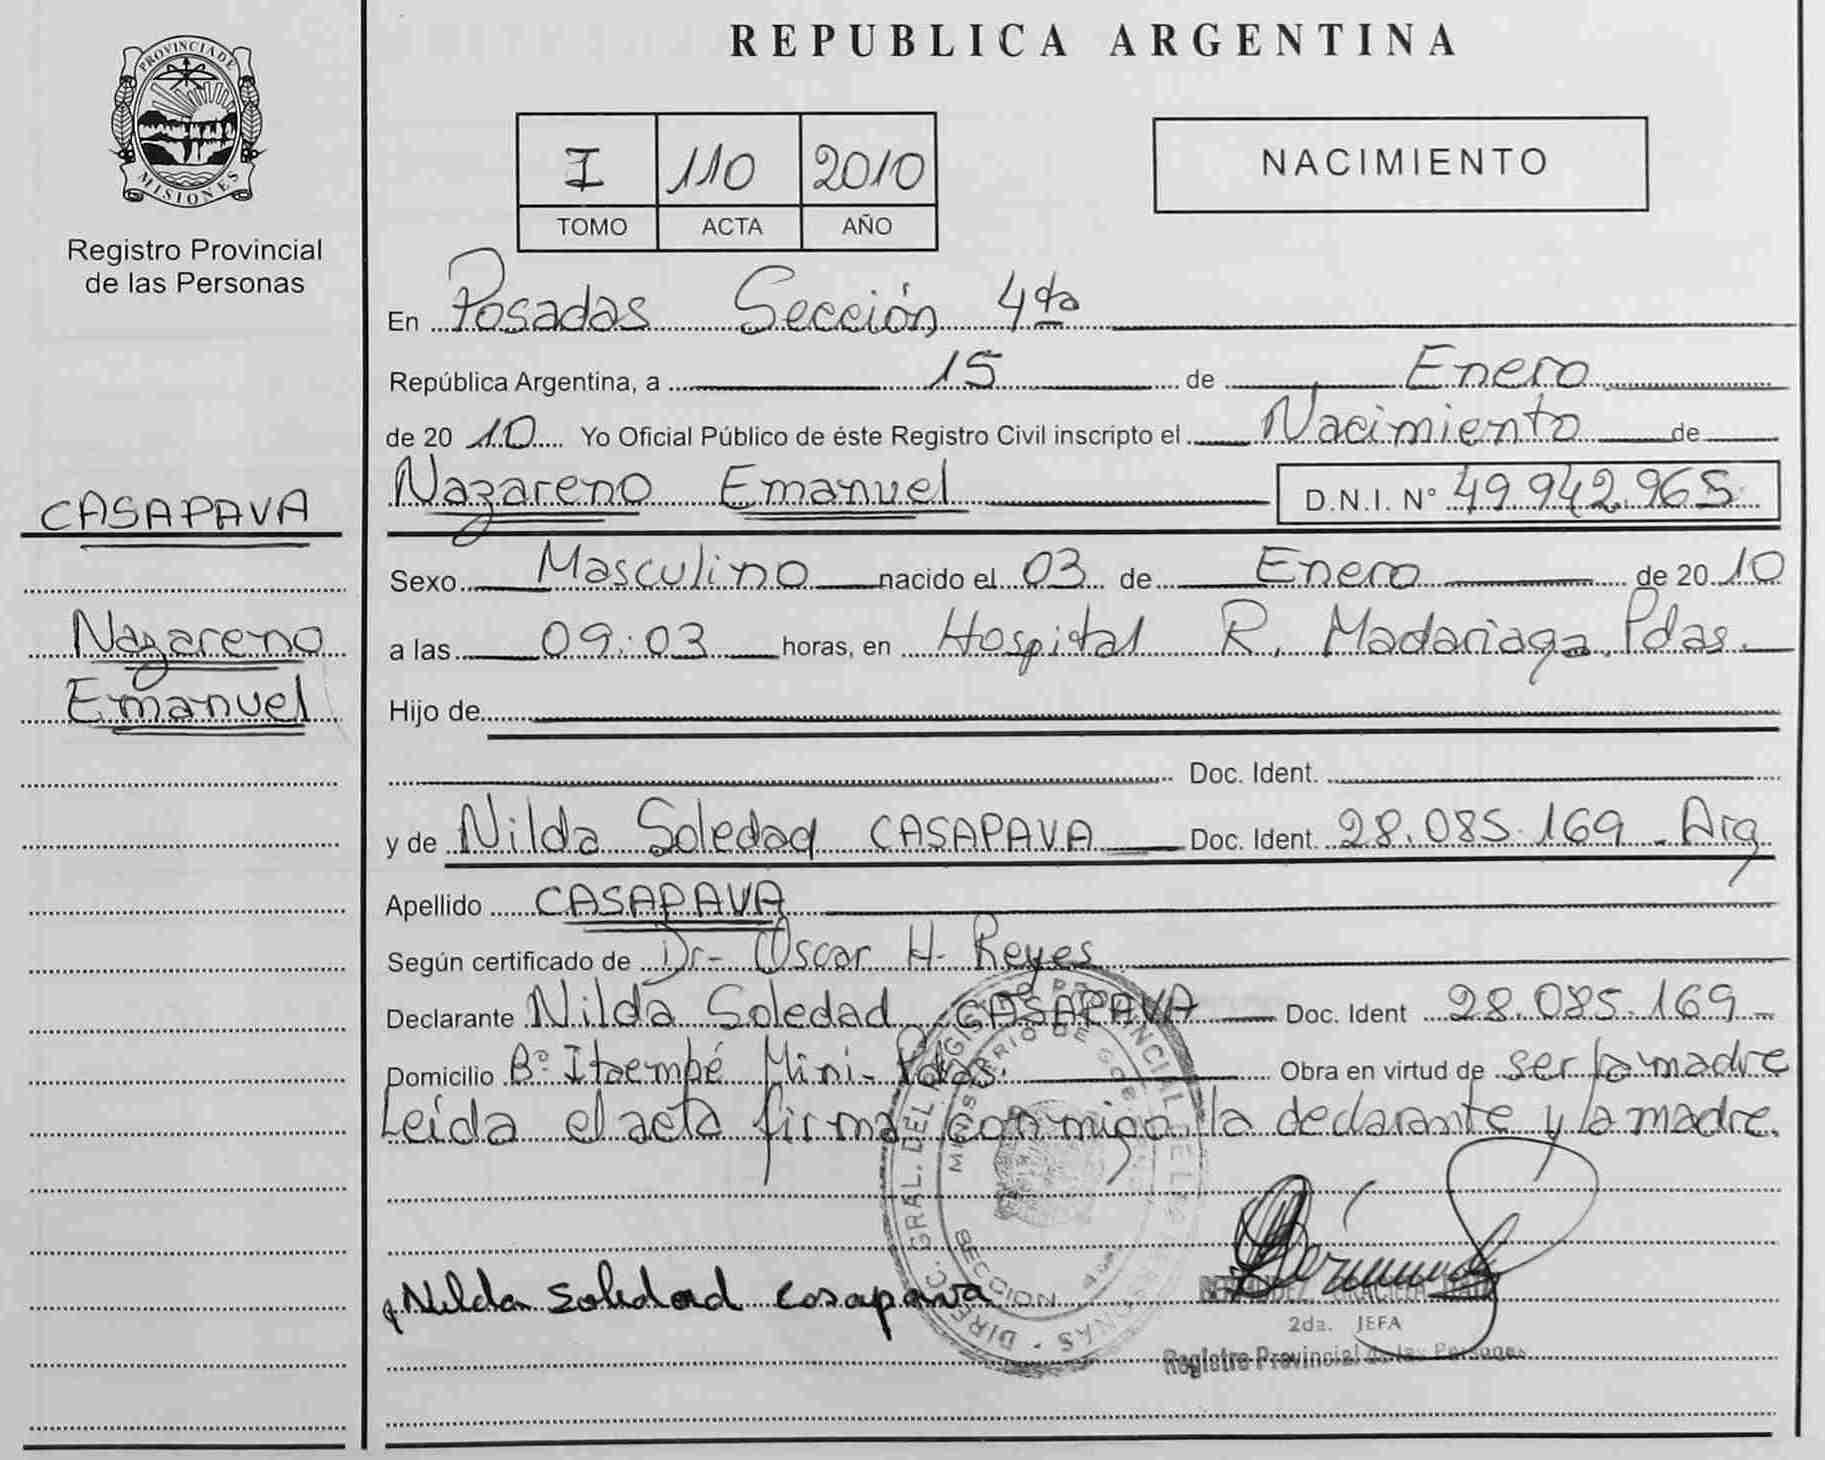 REPUBLICA ARGENTINA
PROVINCIA DE
MISIONES
Registro Provincial
de las Personas
I 110 2010
TOMO ACTA AÑO
NACIMIENTO
En Posadas Sección 4ta
República Argentina, a 15 de Enero
de 2010 Yo Oficial Público de éste Registro Civil inscripto el Nacimiento de
Nazareno Emanuel D.N.I. N° 49.942.965
CASAPAVA
Nazareno
Emanuel
Sexo Masculino nacido el 03 de Enero de 2010
a las 09:03 horas, en Hospital R. Madariaga. Pdas.
Hijo de
Doc. Ident.
y de Nilda Soledad CASAPAVA Doc. Ident. 28.085.169 - Arg
Apellido CASAPAVA
Según certificado de Dr- Oscar H- Reyes
Declarante Nilda Soledad CASAPAVA Doc. Ident 28.085.169
Domicilio B° Itaembé Mini- Pdas. Obra en virtud de ser la madre
Leída el acta firma conmigo la declarante y la madre.
Nilda Soledad Casapava
2da. JEFA
Registro Provincial de las Personas